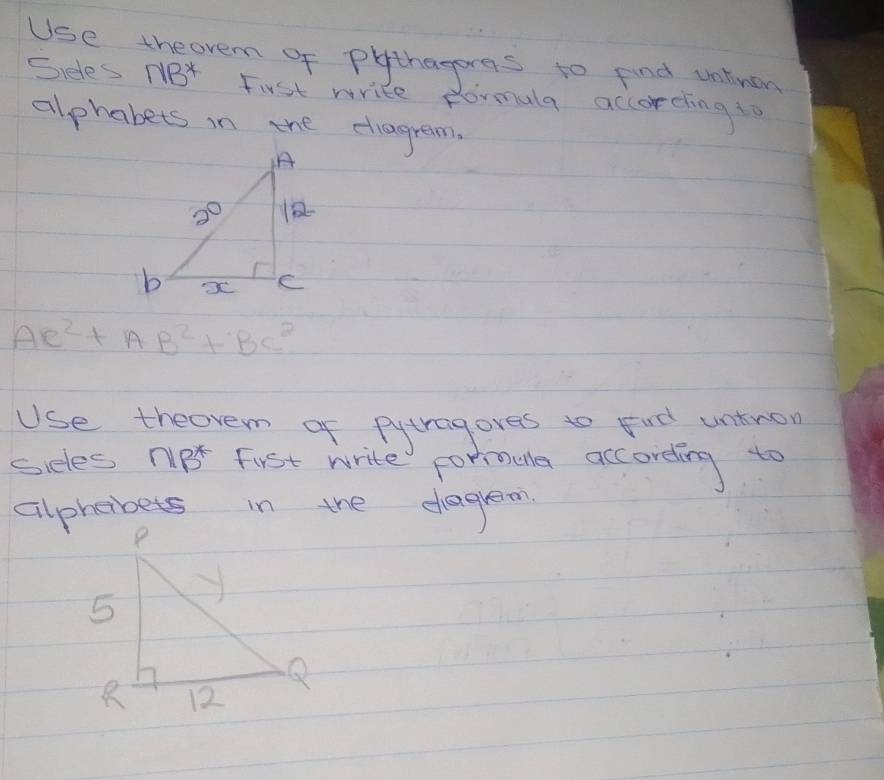 Use theorem of Pythagoras to find unknon
Sides NB* First write formula according to
alphabets in the diagram.
A
20 12
b x c
AC² + AB² + BC²
Use theorem of pytragoras to find unknon
sides NB* First write formula according to
alphabets in the diagram.
P
5 y
R 12 Q